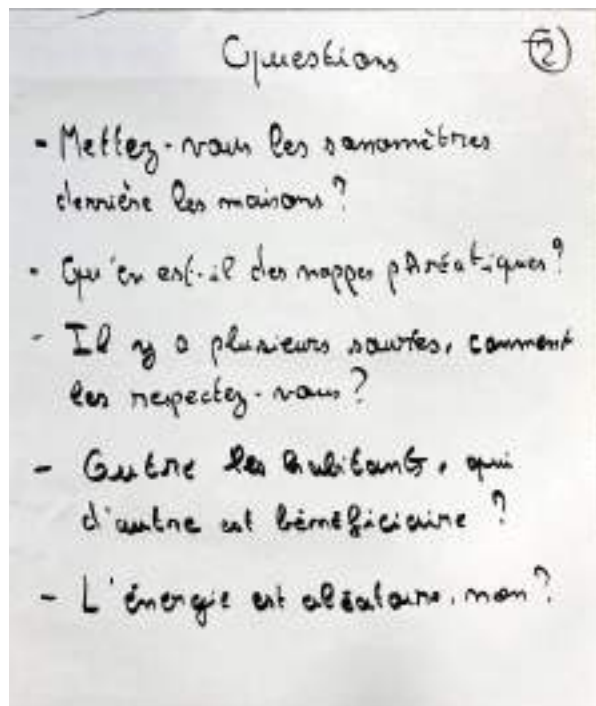 Questions 2
- Mettez-vous les sonomètres
derrière les maisons ?
- Qu'en est-il des nappes phréatiques ?
- Il y a plusieurs sources, comment
les respectez-vous ?
- Outre les habitants, qui
d'autre est bénéficiaire ?
- L'énergie est aléatoire, non ?